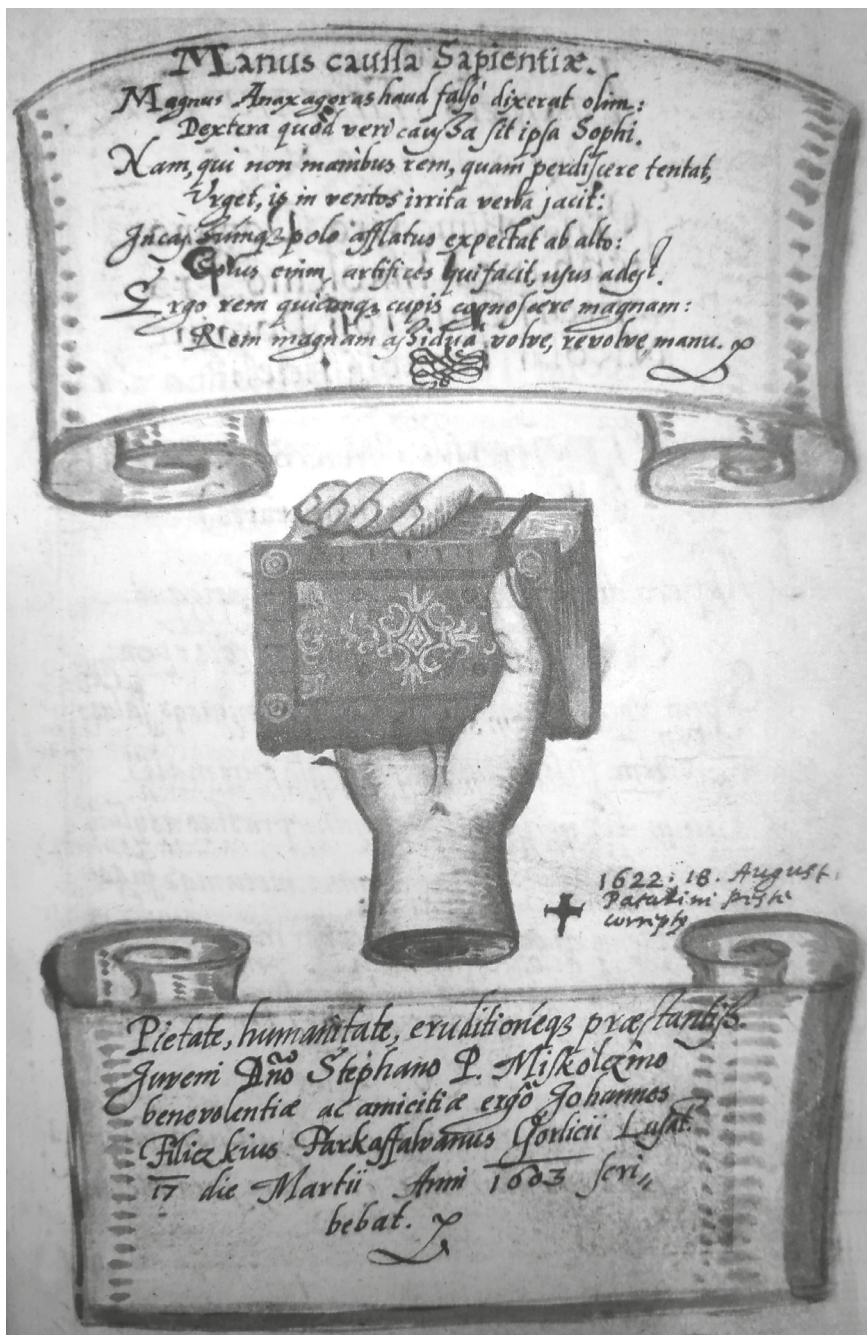 Manus caussa Sapientiæ.
Magnus Anaxagoras haud falsò dixerat olim:
Dextera quòd veri caussa sit ipsa Sophi.
Nam, qui non manibus rem, quam perdiscere tentat,
Urget, is in ventos irrita verba jacit:
polo afflatus expectat ab alto:
enim, artifices qui facit, usus adest.
Ergo rem quicunq; cupis cognoscere magnam:
Rem magnam assiduâ volve, revolve manu.
1622. 18. August.
Patakini peste
correpty
Pietate, humanitate, eruditioneq; præstantiss.
Juveni Dño Stephano P. Miskolczino
benevolentiæ ac amicitiæ ergò Johannes
Filiczkius Farkaffalvanus Gorlicii Lusat.
17 die Martii Anni 1603 scri„
bebat.